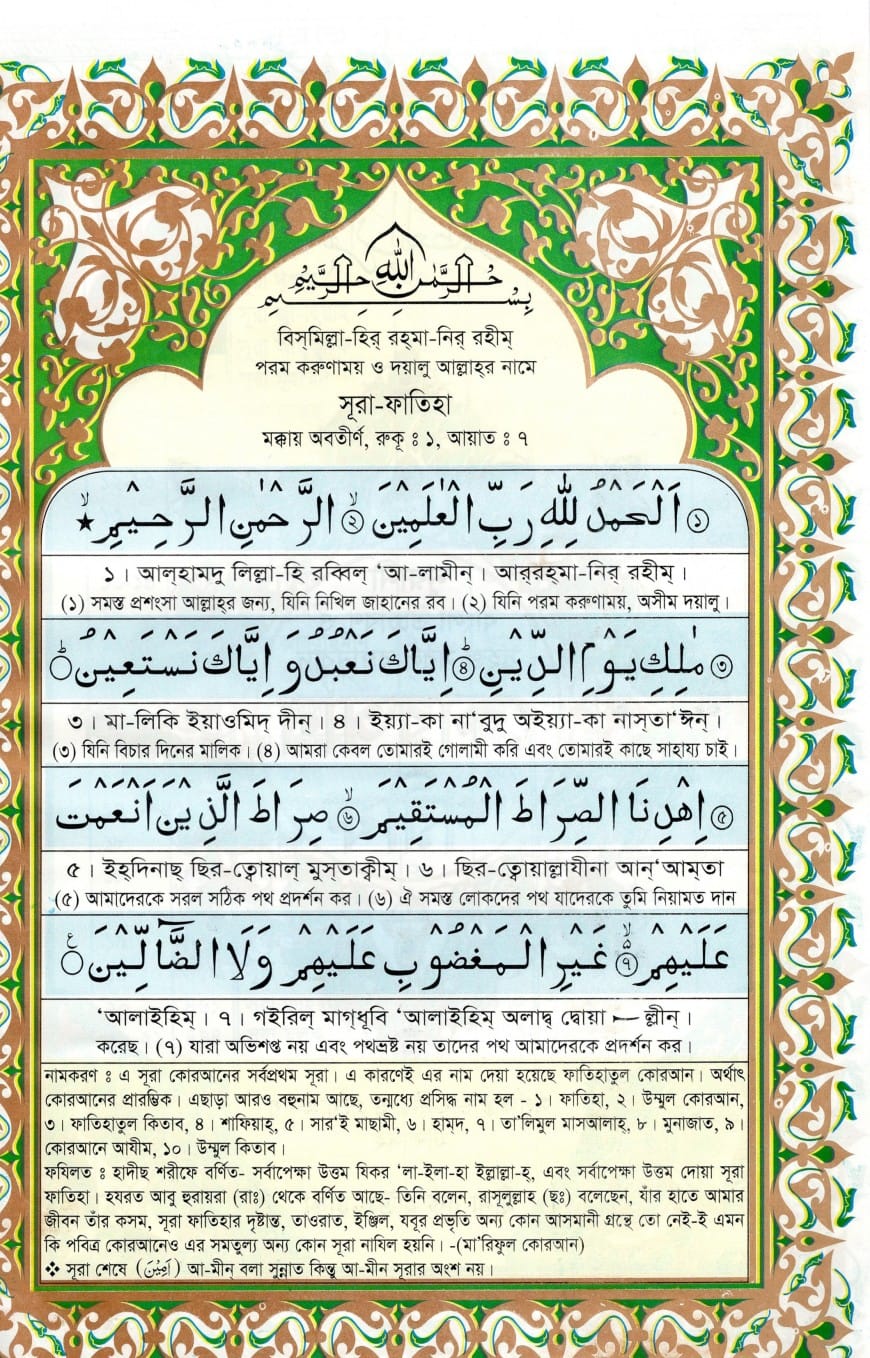 بِسْمِ اللهِ الرَّحْمٰنِ الرَّحِيْمِ
বিস্‌মিল্লা-হির্‌ রহ্‌মা-নির্‌ রহীম্‌
পরম করুণাময় ও দয়ালু আল্লাহ্‌র নামে
সূরা-ফাতিহা
মক্কায় অবতীর্ণ, রুকূ ঃ ১, আয়াত ঃ ৭
১ اَلْحَمْدُ لِلّٰهِ رَبِّ الْعٰلَمِيْنَ ۙ ২ الرَّحْمٰنِ الرَّحِيْمِ ۙ ★
১। আল্‌হামদু লিল্লা-হি রব্বিল্‌ ‘আ-লামীন্‌। আর্‌রহ্‌মা-নির্‌ রহীম্‌।
(১) সমস্ত প্রশংসা আল্লাহ্‌র জন্য, যিনি নিখিল জাহানের রব। (২) যিনি পরম করুণাময়, অসীম দয়ালু।
৩ مٰلِكِ يَوْمِ الدِّيْنِ ؕ ৪ اِيَّاكَ نَعْبُدُ وَاِيَّاكَ نَسْتَعِيْنُ ؕ
৩। মা-লিকি ইয়াওমিদ্‌ দীন্‌। ৪। ইয়্যা-কা না‘বুদু অইয়্যা-কা নাস্‌তা‘ঈন্‌।
(৩) যিনি বিচার দিনের মালিক। (৪) আমরা কেবল তোমারই গোলামী করি এবং তোমারই কাছে সাহায্য চাই।
৫ اِهْدِنَا الصِّرَاطَ الْمُسْتَقِيْمَ ۙ ৬ صِرَاطَ الَّذِيْنَ اَنْعَمْتَ
৫। ইহ্‌দিনাছ্‌ ছির-ত্বোয়াল্‌ মুস্‌তাক্বীম্‌। ৬। ছির-ত্বোয়াল্লাযীনা আন্‌‘আম্‌তা
(৫) আমাদেরকে সরল সঠিক পথ প্রদর্শন কর। (৬) ঐ সমস্ত লোকদের পথ যাদেরকে তুমি নিয়ামত দান
عَلَيْهِمْ ৭ غَيْرِ الْمَغْضُوْبِ عَلَيْهِمْ وَلَا الضَّآلِّيْنَ ع
‘আলাইহিম্‌। ৭। গইরিল্‌ মাগ্‌ধূবি ‘আলাইহিম্‌ অলাদ্ব দ্বোয়া — ল্লীন্‌।
করেছ। (৭) যারা অভিশপ্ত নয় এবং পথভ্রষ্ট নয় তাদের পথ আমাদেরকে প্রদর্শন কর।
নামকরণ ঃ এ সূরা কোরআনের সর্বপ্রথম সূরা। এ কারণেই এর নাম দেয়া হয়েছে ফাতিহাতুল কোরআন। অর্থাৎ
কোরআনের প্রারম্ভিক। এছাড়া আরও বহুনাম আছে, তন্মধ্যে প্রসিদ্ধ নাম হল - ১। ফাতিহা, ২। উম্মুল কোরআন,
৩। ফাতিহাতুল কিতাব, ৪। শাফিয়াহ্‌, ৫। সার‘ই মাছামী, ৬। হাম্‌দ, ৭। তা’লিমুল মাসআলাহ্‌, ৮। মুনাজাত, ৯।
কোরআনে আযীম, ১০। উম্মুল কিতাব।
ফযিলত ঃ হাদীছ শরীফে বর্ণিত- সর্বাপেক্ষা উত্তম যিকর ‘লা-ইলা-হা ইল্লাল্লা-হ্‌, এবং সর্বাপেক্ষা উত্তম দোয়া সূরা
ফাতিহা। হযরত আবু হুরায়রা (রাঃ) থেকে বর্ণিত আছে- তিনি বলেন, রাসূলুল্লাহ (ছঃ) বলেছেন, যাঁর হাতে আমার
জীবন তাঁর কসম, সূরা ফাতিহার দৃষ্টান্ত, তাওরাত, ইঞ্জিল, যবুর প্রভৃতি অন্য কোন আসমানী গ্রন্থে তো নেই-ই এমন
কি পবিত্র কোরআনেও এর সমতুল্য অন্য কোন সূরা নাযিল হয়নি। -(মা’রিফুল কোরআন)
❖ সূরা শেষে (اٰمِيْنَ) আ-মীন্‌ বলা সুন্নাত কিন্তু আ-মীন সূরার অংশ নয়।